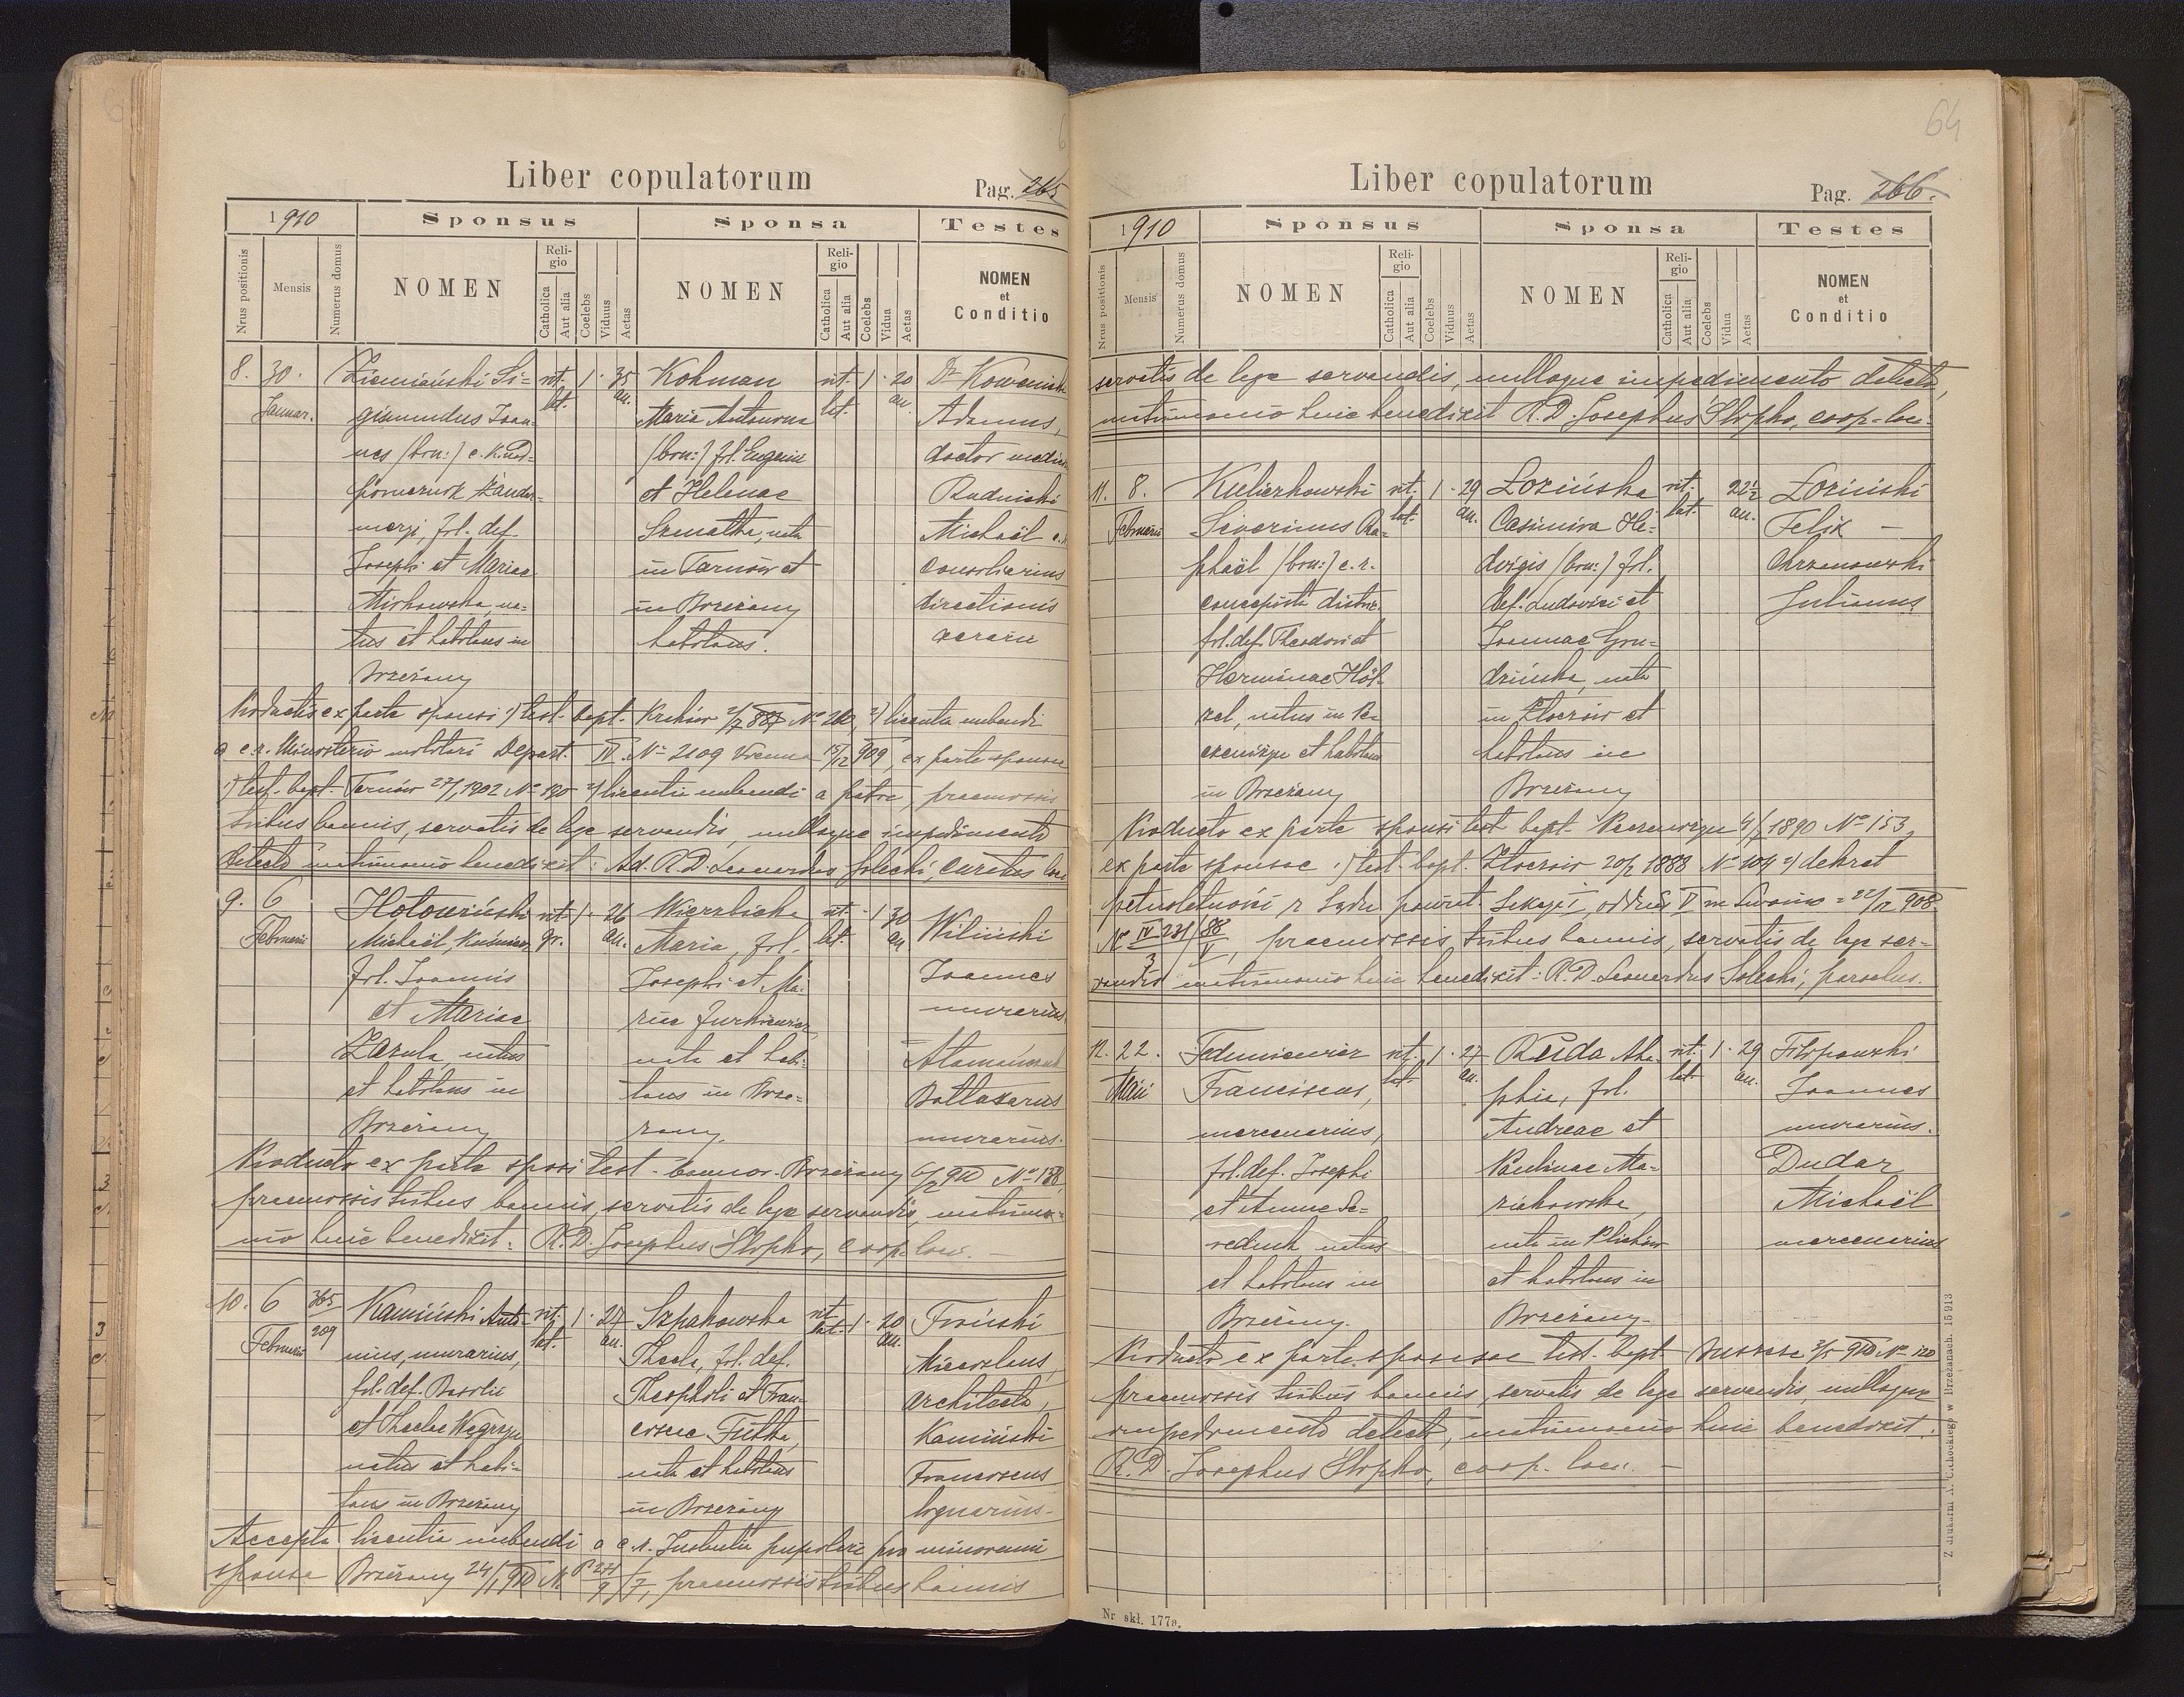 64
Liber copulatorum
Pag. 265
1910
Sponsus
Sponsa
Testes
Nrus positionis
Mensis
Numerus domus
NOMEN
Religio
Catholica
Aut alia
Coelebs
Viduus
Aetas
NOMEN
Religio
Catholica
Aut alia
Coelebs
Vidua
Aetas
NOMEN
et
Conditio
8. 30. Ziemiański Si= rit. 1 · 35 Kohman rit. 1 · 20 Dr
Januar. gismundus Joan= lat. an. Maria Antonina lat. an. Adamus,
nes (bin:) c. k. (bin:) fil. Eugenii doctor
et Helenae Rudnicki
fil. def. nata Michaël
Josephi et Mariae in Tarnów et consiliarius
Mirkowska, na= in Brzeżany directionis
tus et habitans in habitans.
Brzeżany
Productis ex parte sponsi 1) test. bapt. Kraków No 210, 2) licentia nubendi
a c. r. Ministerio militari Depart. IV. No 2109 Vienna 15/12 909, ex parte sponsae
1) test. bapt. Tarnów 1902 No 190 2) licentia nubendi a patre, praemissis
tribus bannis, servatis de lege servandis, nulloque impedimento
detecto matrimonio benedixit: Ad. R. D. Leonardus Solecki, curatus loci
9. 6 Hotowiński rit. 1 · 26 Wierzbicka rit. · 1 30 Wiliński
Februarii Michaël, gr. an. Maria, fil. lat. an. Joannes
fil. Joannis Josephi et Ma= murarius
et Mariae riae Jurkiewicz
Zazula, natus nata et habi=
et habitans in tans in Brze= Baltazarus
Brzeżany żany. murarius.
Producto ex parte sposi test. bannor. Brzeżany 6/2 910 No 138,
praemissis tribus bannis, servatis de lege servandis, matrimo=
nio huic benedixit: R. D. Josephus Słopko, coop. loci. —
10. 6 365 Kamiński Anto= rit. 1 · 27 Szpakowska rit. 1 · 20 Froński
Februarii 209 nius, murarius, lat. an. Thecla, fil. def. lat. an.
fil. def. Basilii Theophili et Fran= architecta,
et Theclae Węgrzyn ciscae Futka, Kamiński
natus et habi= nata et habitans Franciscus
tans in Brzeżany in Brzeżany lignarius.
Accepta licentia nubendi a c. r. Judicio pupilari pro minorenni
sponsa Brzeżany 24/1 910 N. P 271/9 / 7, praemissis tribus bannis
Liber copulatorum
Pag. 266.
1910
Sponsus
Sponsa
Testes
Nrus positionis
Mensis
Numerus domus
NOMEN
Religio
Catholica
Aut alia
Coelebs
Viduus
Aetas
NOMEN
Religio
Catholica
Aut alia
Coelebs
Vidua
Aetas
NOMEN
et
Conditio
servatis de lege servandis, nulloque impedimento detecto,
matrimonio huic benedixit R. D. Josephus Słopko, coop. loci.
11. 8. rit. 1 · 29 Łozińska rit. 22½ Łoziński
Februarii Severinus Ra= lat. an. Casimira He= lat. an. Felix —
phaël (bin:) c. r. dvigis (bin:) fil. Chrzanowski
concepista distr. def. Ludovici et Julianus
fil. def. Theodori et Joannae Gru=
Herminae Höl= dzińska, nata
zel, natus in Pe= in Złoczów et
czeniżyn et habitans habitans in
in Brzeżany Brzeżany
Producto ex parte sponsi test. bapt. Peczeniżyn 1890 No 153,
ex parte sponsae 1) test. bapt. Złoczów 20/2 1888 No 104 2) dekret
pełnoletności z Sądu powiat. Sekcja I, oddział V we Lwowie = 22/12 908
No IV 231/3 / 88/V, praemissis tribus bannis, servatis de lege ser=
vandis matrimonio huic benedixit: R. D. Leonardus Solecki, parochus.
12. 22. rit. 1 · 27 Ruda rit. 1 · 29 Filipowski
Maii Franciscus, lat. an. phia, fil. lat. an. Joannes
mercenarius, Andreae et murarius.
fil. def. Josephi Paulinae Ma= Dudar
et Annae De= zickowska, Michaël
reduch, natus nata in Plichów mercenarius
et habitans in et habitans in
Brzeżany. Brzeżany.
Producto ex parte sponsae test. bapt. 910 No 120
praemissis tribus bannis, servatis de lege servandis, nulloque
impedimento detecto, matrimonio huic benedixit:
R. D. Josephus Słopko, coop. loci. —
Nr skł. 177a.
Z drukarni A. Cichockiego w Brzeżanach. 15913